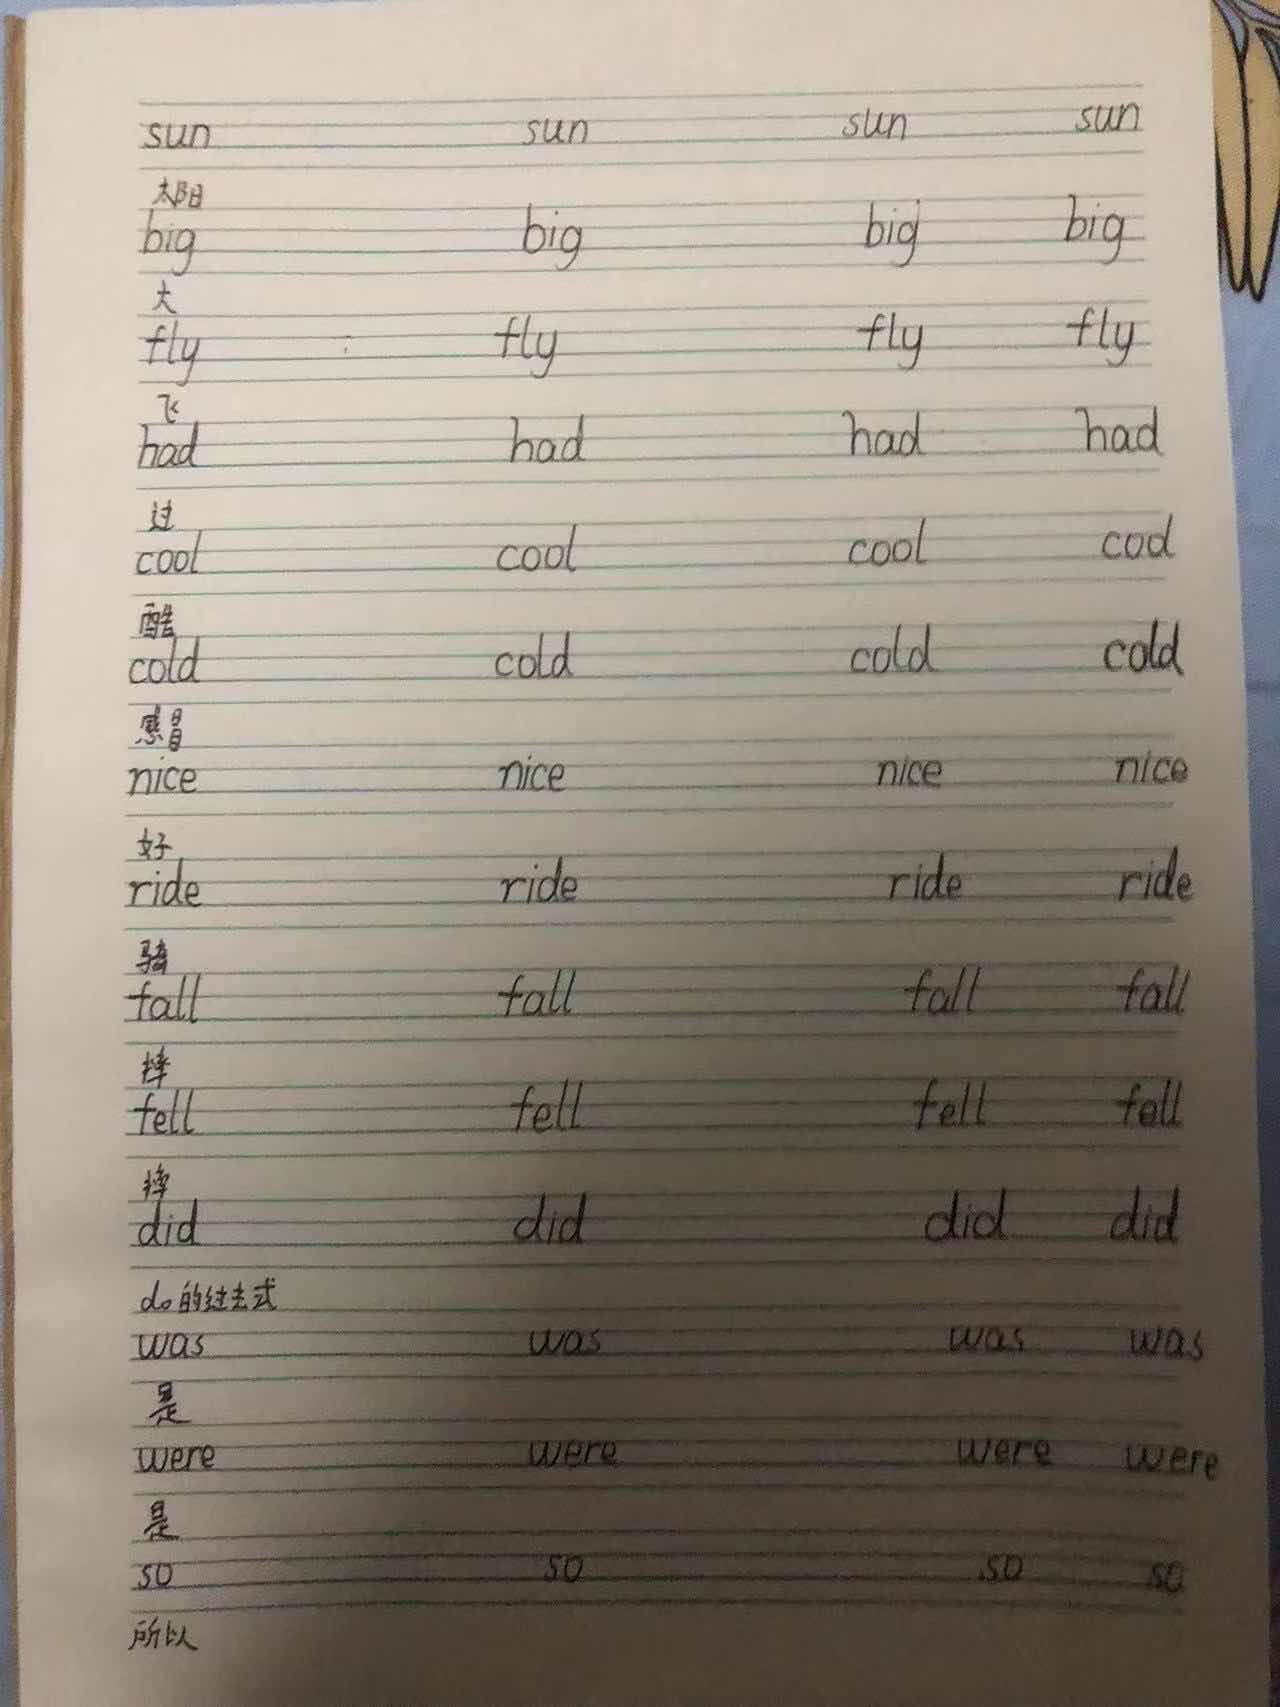 sun sun sun sun
太阳
big big big big
大
fly fly fly fly
飞
had had had had
过
cool cool cool cool
酷
cold cold cold cold
感冒
nice nice nice nice
好
ride ride ride ride
骑
fall fall fall fall
摔
fell fell fell fell
摔
did did did did
do的过去式
was was was was
是
were were were were
是
so so so so
所以